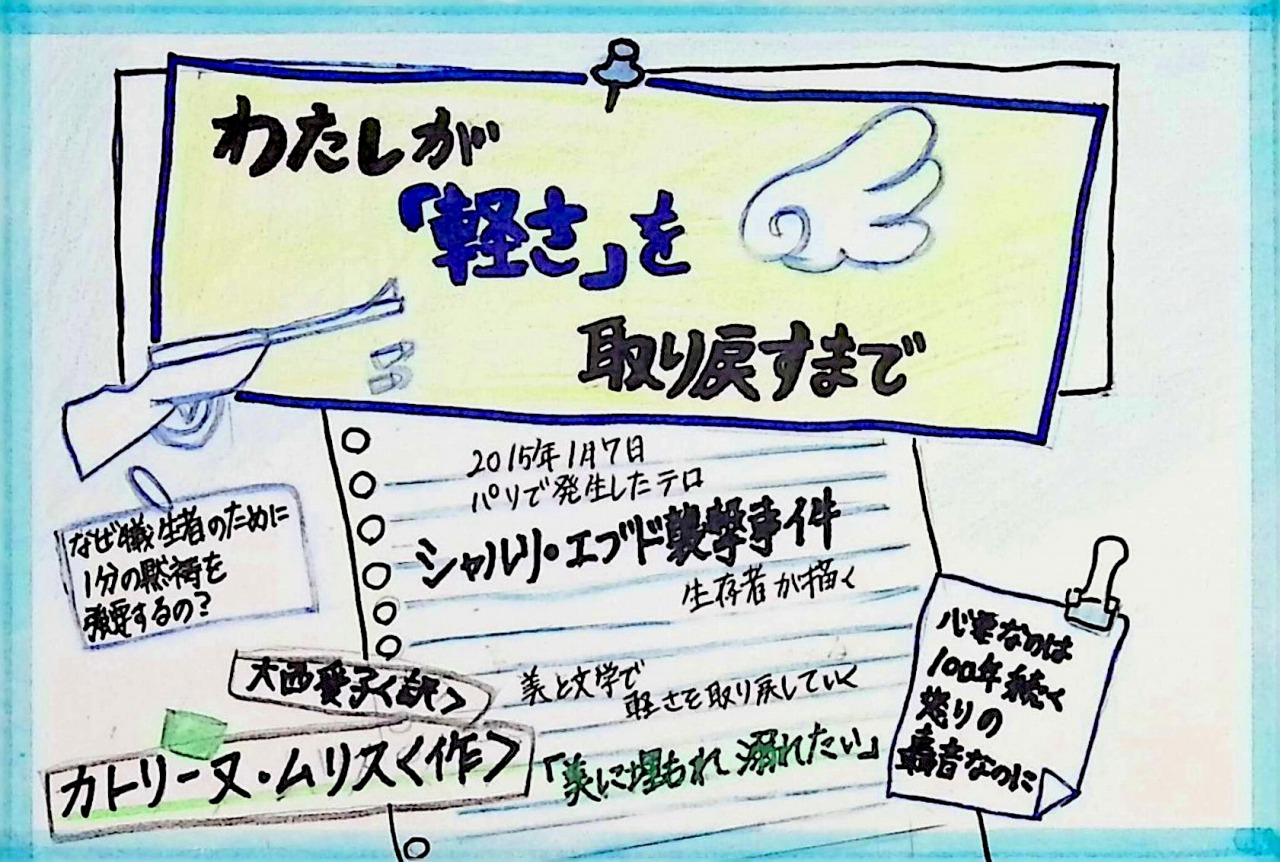 わたしが
「軽さ」を
取り戻すまで
2015年1月7日
パリで発生したテロ
シャルリ・エブド襲撃事件
生存者が描く
なぜ犠牲者のために
1分の黙祷を
強要するの?
大西愛子<訳>
カトリーヌ・ムリス<作>
美と文学で
軽さを取り戻していく
「美に埋もれ溺れたい」
必要なのは
100年続く
怒りの
轟音なのに